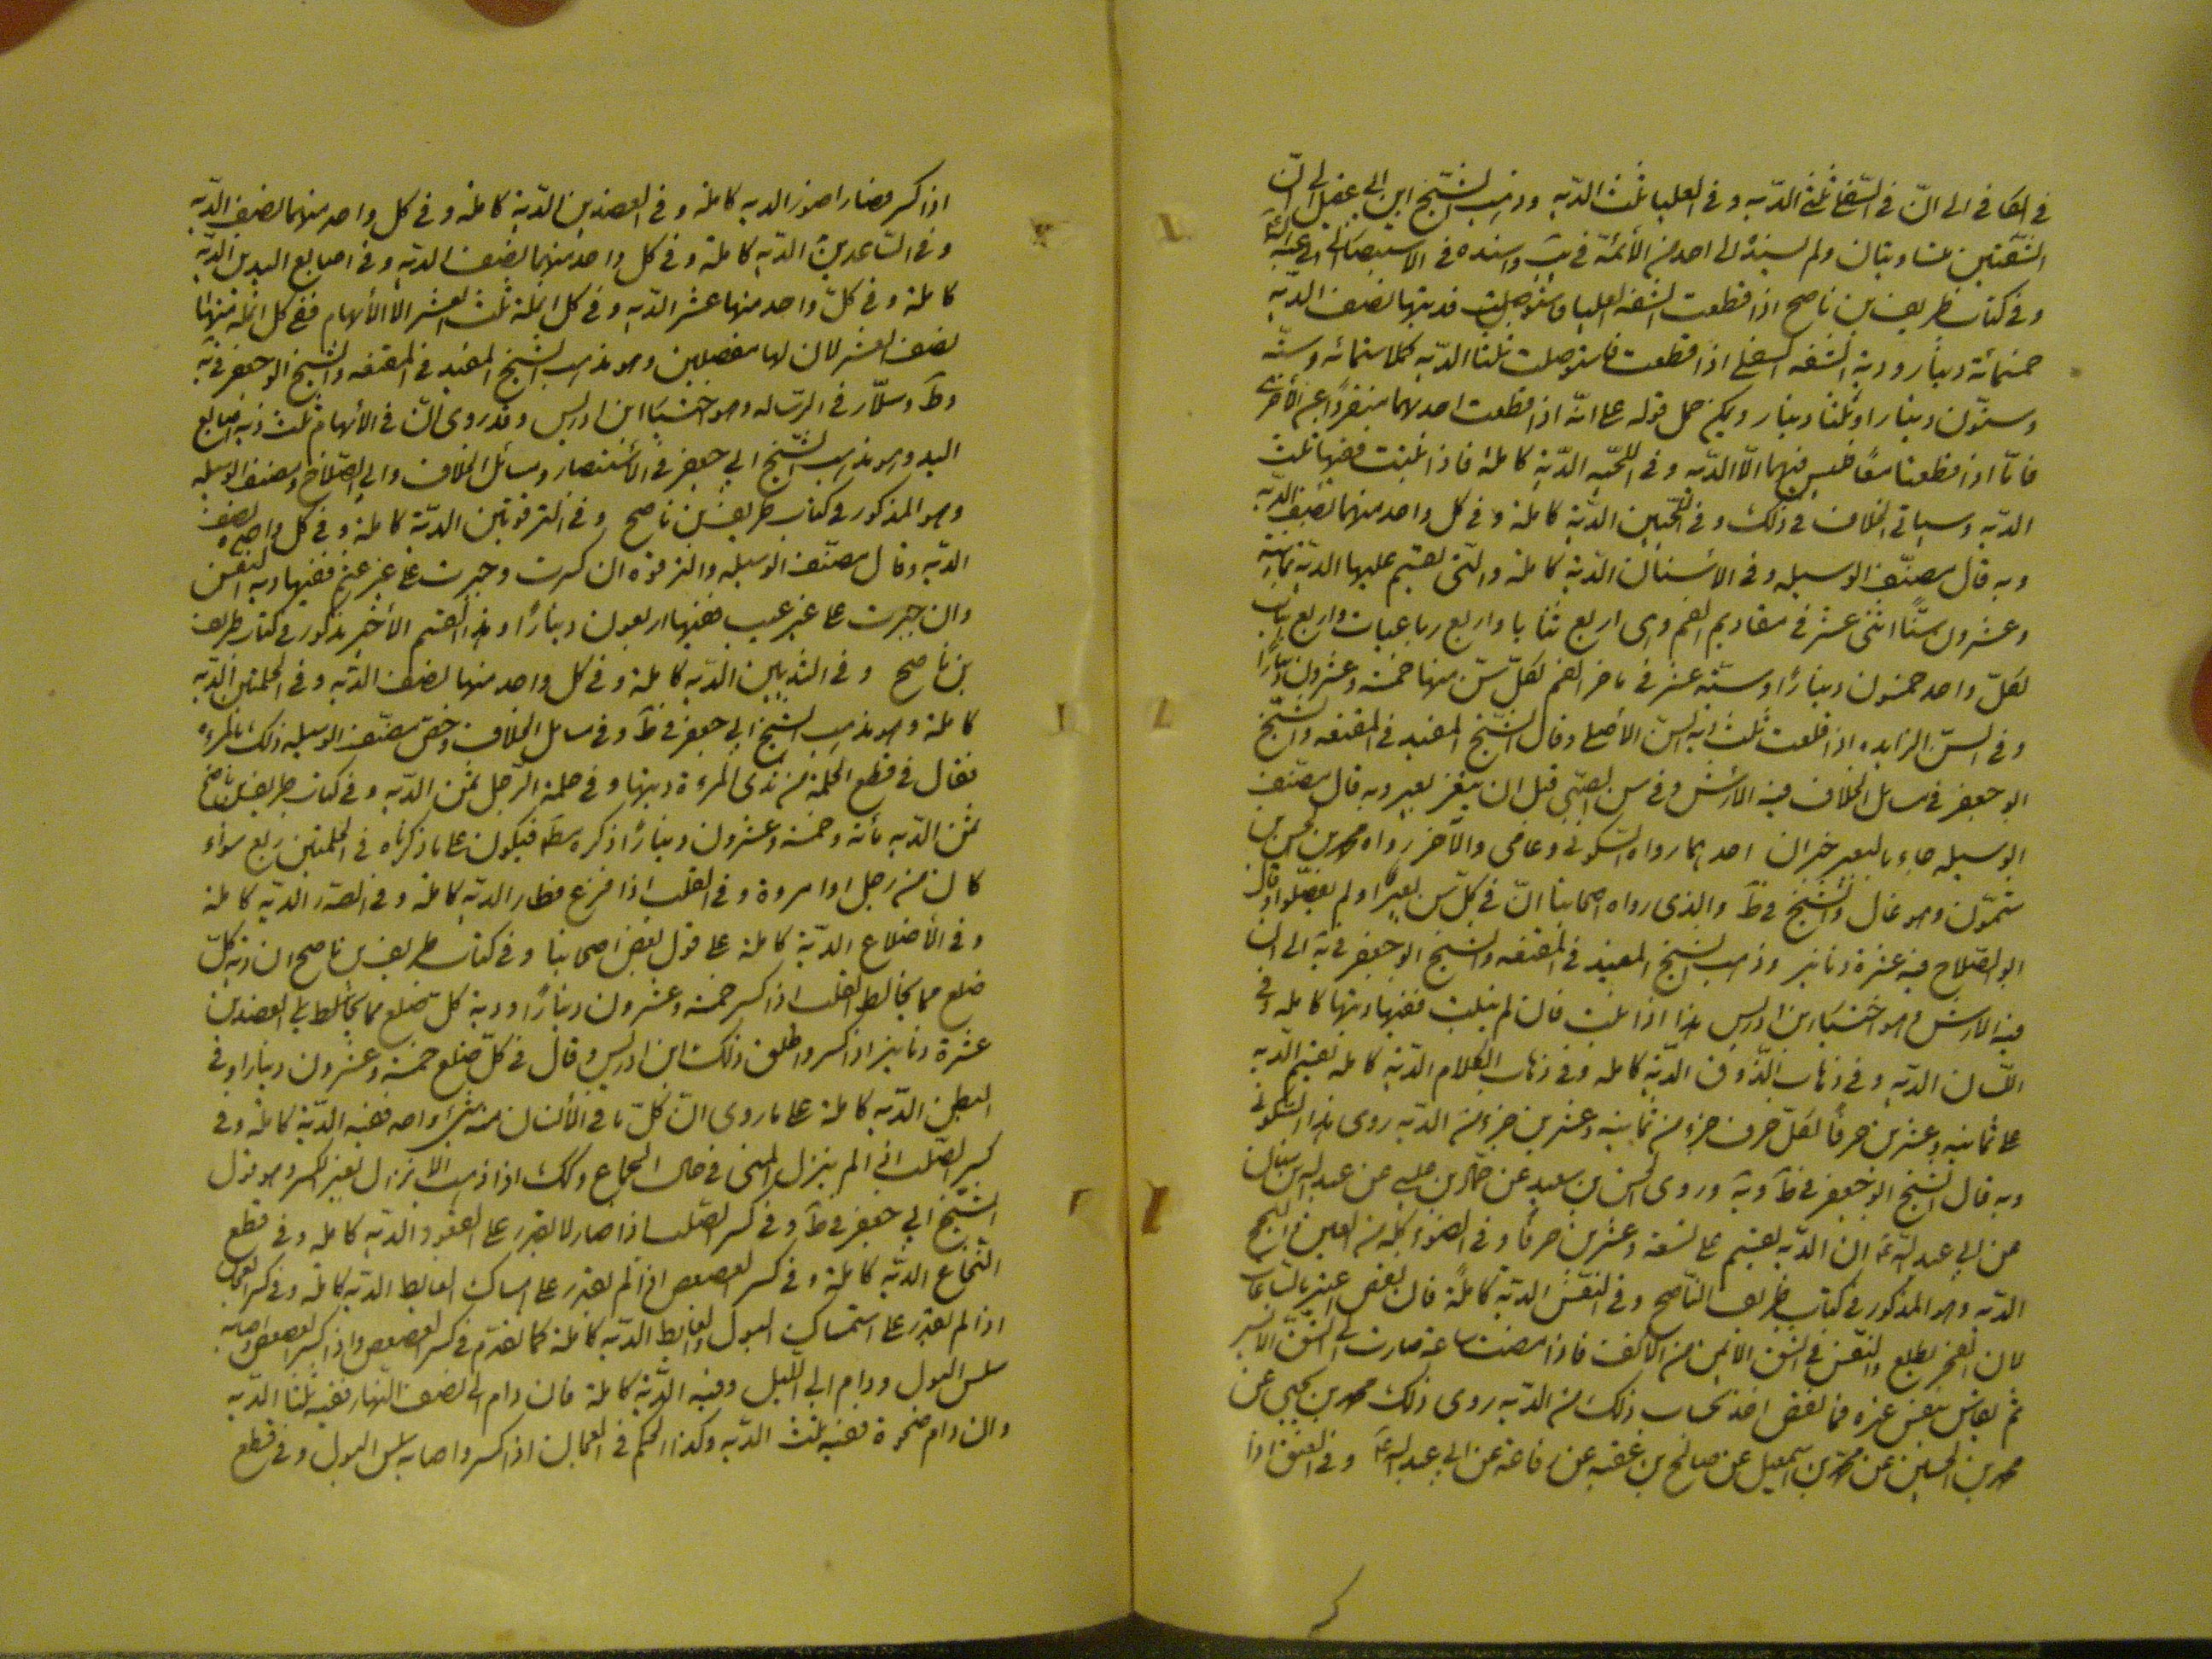 في الكافي الى انّ في السّفلى ثلثي الدّيه وفي العليا ثلث الدّيه وذهب الشّيخ ابن ابي عقيل الى انّ
الشّفتين متساويتان ولم يسنده الى احد من الأئمّة في يب واسنده في الاستبصار الى ابي عبد الله
وفي كتاب ظريف بن ناصح اذا قطعت الشفه العليا فاستوصلت فديتها نصف الدّيه
خمسمائة دينار ودية الشفه السفلى اذا قطعت فاستوصلت ثلثا الدّيه كملا ستمائه وستّه
وستّون دينارا وثلثا دينار ويمكن حمل قوله على انّه اذا قطعت احدىهما منفردًا عن الأخرى
فامّا اذا قطعتا معًا فليس فيهما الّا الدّيه وفي اللحيه الدّية كاملة فاذا نبتت ففيها ثلث
الدّيه وسياتي الخلاف في ذلك وفي اللّحيين الدّية كاملة وفي كل واحد منهما نصف الدّيه
وبه قال مصنّف الوسيله وفي الاسنان الدّية كاملة والتي تقسم عليها الدّية ثمانية
وعشرون سنًّا اثنى عشر في مقاديم الفم وهي اربع ثنايا واربع رباعيات واربع انياب
لكلّ واحد خمسون دينارًا وستّة عشر في ماخر الفم لكلّ سنّ منها خمسة وعشرون دينارًا
وفي السنّ الزايده اذا قلعت ثلث دية السنّ الأصلي وقال الشّيخ المفيد في المقنعه والشّيخ
ابو جعفر في مسائل الخلاف فيه الارش وفي سن الصبّي قبل ان يثغر بعير وبه قال مصنّف
الوسيله جاء بالبعير خبران احدهما رواه السّكوني وعامى والآخر رواه محمد بن الحسن بن
شمّون وهو غال والشّيخ في ط والذي رواه اصحابنا انّ في كلّ سن بعيرًا ولم يفصّلوا وقال
ابو الصّلاح فيه عشرة دنانير وذهب الشيخ المفيد في المقنعه والشيخ ابو جعفر في يه الى ان
فيه الارش وهو اختيار ابن ادريس هذا اذا نبت فان لم ينبت ففيها ديتها كامله وفي
اللّسان الدّيه وفي ذهاب الذّوق الدّية كامله وفي ذهاب الكلام الدّية كامله تقسم الدّيه
على ثمانيه وعشرين حرفًا لكلّ حرف جزء من ثمانيه وعشرين جزء من الدّيه روى هذا السّكوني
وبه قال الشيخ ابو جعفر في ط ويه وروى الحسن بن سعيد عن حمّاد بن عيسى عن عبد الله بن سنان
عن ابي عبد الله ع ان الدّيه يقسم على تسعة وعشرين حرفًا وفي الضوء كله من العين
الدّيه وهو المذكور في كتاب ظريف النّاصح وفي النّفس الدّية كاملة فان نقص اعتبر بالسّاعات
لان الفجر يطلع والنّفس في الشق الايمن من الانف فاذا مضت ساعة صارت الى الشقّ الايسر
ثم يقاس بنفس غيره فما نقص اخذ بحساب ذلك من الدّيه روى ذلك محمد بن يحيى عن
محمد بن الحسين عن محمد بن اسمعيل عن صالح بن عقبه عن رفاعة عن ابي عبد الله ع وفي العنق اذا
اذا كسر فصار اصور الديه كاملة وفي العضدين الدّية كاملة وفي كل واحد منهما نصف الدّيه
وفي السّاعدين الدّيه كاملة وفي كل واحد منهما نصف الدّيه وفي اصابع اليدين الدّيه
كاملة وفي كلّ واحد منها عشر الدّيه وفي كل انملة ثلث العشر الا الأبهام ففي كل انملة منها
نصف العشر لان لها مفصلين وهو مذهب الشيخ المفيد في المقنعه والشيخ ابو جعفر في يه
وط وسلّار في الرّساله وهو اختيار ابن ادريس وقد روى انّ في الأبهام ثلث دية اصابع
اليد وهو مذهب الشّيخ ابي جعفر في الأستبصار ومسائل الخلاف وابي الصّلاح ومصنف الوسيله
وهو المذكور في كتاب ظريف بن ناصح وفي الترقوتين الدّية كاملة وفي كل واحده نصف
الدّيه وقال مصنّف الوسيله والترقوه ان كسرت وجبرت على غير عثم ففيها دية النفس
وان جبرت على غير عيب ففيها اربعون دينارًا وهذا القسم الأخير مذكور في كتاب ظريف
بن ناصح وفي الثديين الدّيه كاملة وفي كل واحد منهما نصف الدّيه وفي الحلمتين الدّيه
كاملة وهو مذهب الشيخ ابي جعفر في ط وفي مسايل الخلاف وخصّ مصنّف الوسيله ذلك بالمرءه
فقال في قطع الحلمة من ثدى المرءة ديتها وفي حلمة الرّجل ثمن الدّيه وفي كتاب ظريف بن ناصح
ثمن الدّيه مأئة وخمسة وعشرون دينارًا ذكره فيكون على ما ذكرناه في الحلمتين ربع سواء
كان من رجل او امروة وفي القلب اذا فزع فطار الدّيه كاملة وفي الصّدر الدّيه كاملة
وفي الأضلاع الدّية كاملة على قول بعض اصحابنا وفي كتاب ظريف بن ناصح ان دية كلّ
ضلع مما يخالط القلب اذا كسر خمسة وعشرون دينارًا ودية كل ضلع مما يخالط يلي العضدين
عشرة دنانير اذا كسر واطلق ذلك ابن ادريس وقال في كلّ ضلع خمسة وعشرون دينارا وفي
البطن الدّيه كاملة على ما روى انّ كلّ ما في الأنسان منه شيء واحد ففيه الدّية كاملة وفي
كسر الصّلب اذا لم ينزل المني في حال الجماع وكذلك اذا ذهب الانزال بغير كسر وهو قول
الشّيخ ابي جعفر في ط وفي كسر الصّلب اذا صار لا يقدر على القعود الدّيه كامله وفي قطع
النّخاع الدّيه كاملة وفي كسر العصعص اذا لم يقدر على امساك الغايط الدّيه كاملة وفي كسر العجان
اذا لم يقدر على استمساك البول والغايط الدّيه كاملة كما تقدّم في كسر العصعص واذا كسر العصعص واصابه
سلس البول ودام الى اللّيل وفيه الدّية كاملة فان دام الى نصف النّهار ففيه ثلثا الدّيه
وان دام ضحوة ففيه ثلث الدّيه وكذا الحكم في العجان اذا كسر واصابه سلس البول وفي قطع